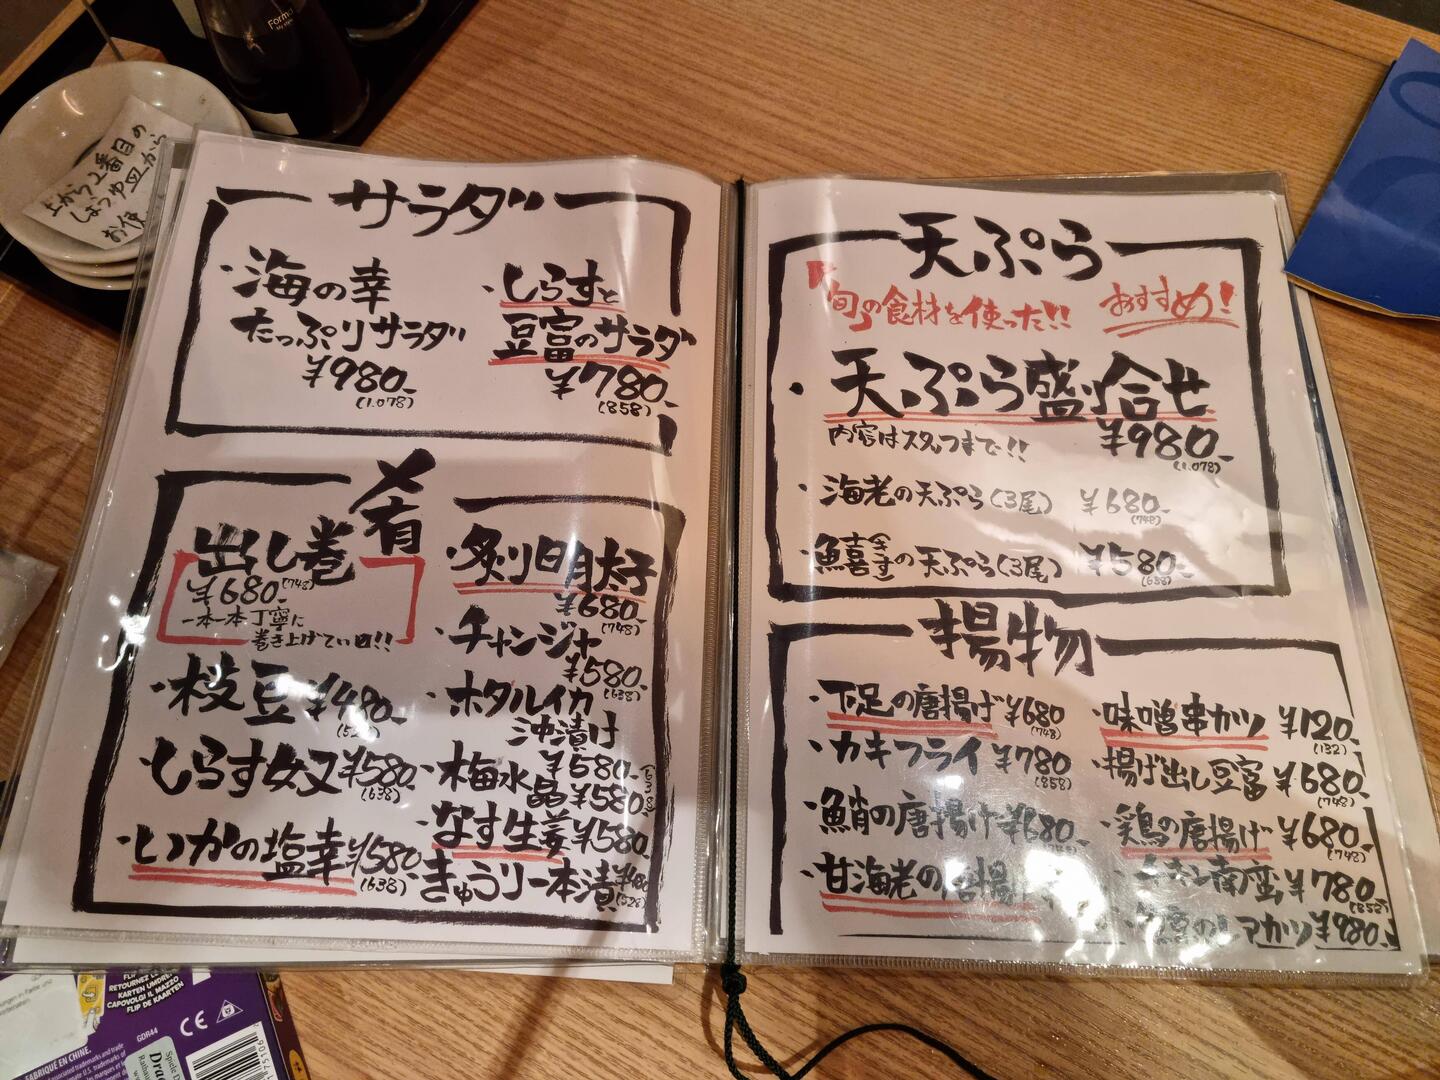 サラダ
・海の幸
たっぷりサラダ
¥980-
(1.078)
・しらすと
豆富のサラダ
¥780-
(858)
肴
出し巻
¥680-(748)
一本一本丁寧に
巻き上げてい〼!!
・枝豆 ¥480-
・しらす女又 ¥580-
(638)
・いかの塩幸 ¥580-
(638)
・炙り明太子
¥680-
(748)
・チャンジャ
¥580-
(638)
・ホタルイカ
沖漬け
¥580-
(638)
・梅水晶 ¥580-
・なす生姜 ¥580-
・きゅうり一本漬 ¥480
(528)
天ぷら
「旬」の食材を使った!! おすすめ!
・天ぷら盛り合せ
内容はスタッフまで!! ¥980-
(1.078)
・海老の天ぷら(3尾) ¥680-
(748)
・鱚(きす)の天ぷら(3尾) ¥580-
(638)
揚物
・下足の唐揚げ ¥680
(748)
・カキフライ ¥780
(858)
・鮹の唐揚げ ¥680-
・甘海老の唐揚
・味噌串カツ ¥120-
(132)
・揚げ出し豆富 ¥680-
(748)
・鶏の唐揚げ ¥680-
(748)
チキン南蛮 ¥780-
(858)
カツ ¥980-
上から2番目の
しょうゆ皿から
お使
Forme
FLIP DE KAARTEN
RETOURNEZ LE
KARTEN UMDREHEN
CAPOVOLGI IL MAZZO
FLIP DE KAARTEN
CE
GDR44
FABRIQUE EN CHINE.